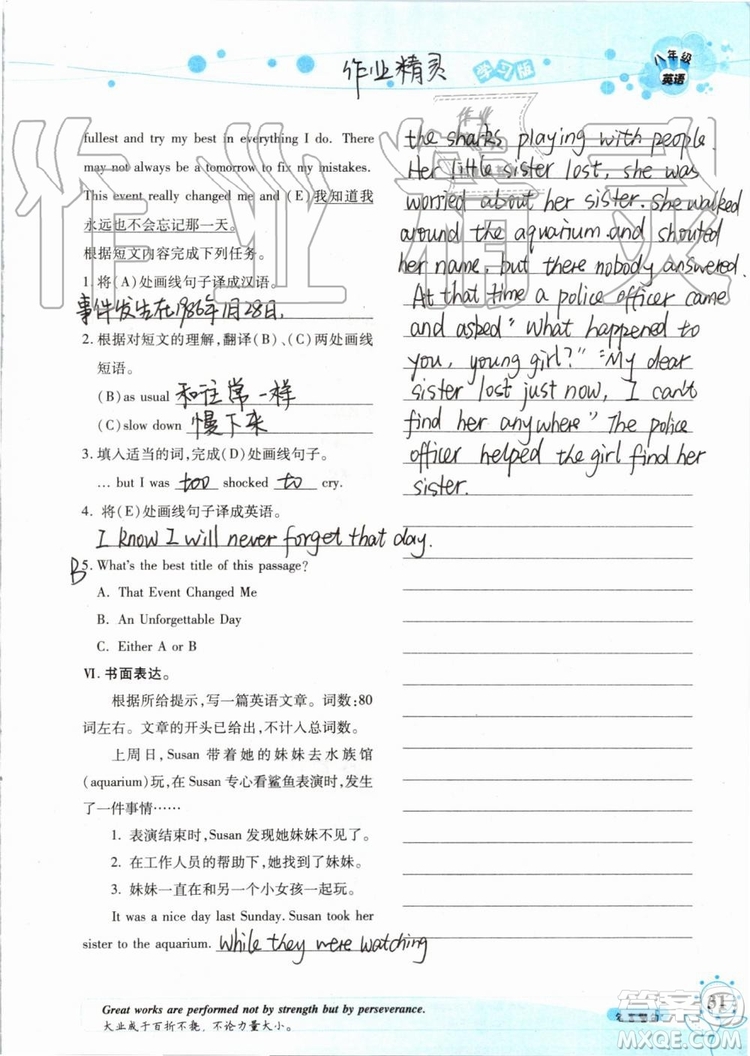 作业精灵
学习版
八年级
英语
fullest and try my best in everything I do. There
may not always be a tomorrow to fix my mistakes.
This event really changed me and (E)我知道我
永远也不会忘记那一天。
根据短文内容完成下列任务。
1. 将(A)处画线句子译成汉语。
事件发生在1986年1月28日.
2. 根据对短文的理解,翻译(B)、(C)两处画线
短语。
(B)as usual 和往常一样
(C)slow down 慢下来
3. 填入适当的词,完成(D)处画线句子。
… but I was too shocked to cry.
4. 将(E)处画线句子译成英语。
I know I will never forget that day.
B 5. What's the best title of this passage?
A. That Event Changed Me
B. An Unforgettable Day
C. Either A or B
Ⅵ. 书面表达。
根据所给提示,写一篇英语文章。词数:80
词左右。文章的开头已给出,不计入总词数。
上周日,Susan 带着她的妹妹去水族馆
(aquarium)玩,在 Susan 专心看鲨鱼表演时,发生
了一件事情……
1. 表演结束时,Susan 发现她妹妹不见了。
2. 在工作人员的帮助下,她找到了妹妹。
3. 妹妹一直在和另外一个小女孩一起玩。
It was a nice day last Sunday. Susan took her
sister to the aquarium. While they were watching
the sharks playing with people.
Her little sister lost, she was
worried about her sister. She walked
around the aquarium and shouted
her name, but there nobody answered.
At that time a police officer came
and asked "What happened to
you, young girl?" "My dear
sister lost just now, I can't
find her anywhere" The police
officer helped the girl find her
sister.
Great works are performed not by strength but by perseverance.
大业成于百折不挠,不论力量大小。
31
作业精灵
答案圈
MXQE.COM